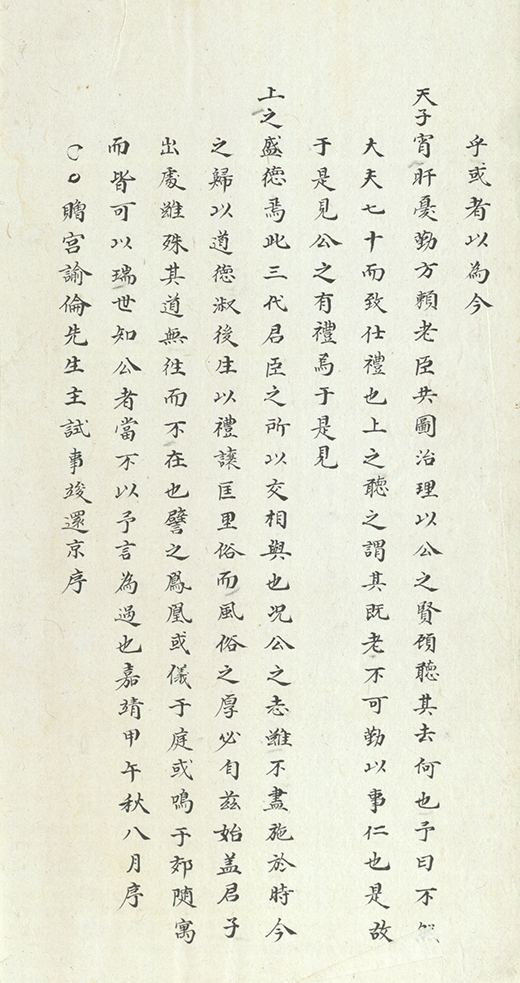 乎或者以為今
天子宵旰憂勤方賴老臣共圖治理以公之賢頋聽其去何也予曰不然
大夫七十而致仕禮也上之聽之謂其既老不可勤以事仁也是故
于是見公之有禮焉于是見
上之盛德焉此三代君臣之所以交相與也况公之志雖不盡施於時今
之歸以道德淑後生以禮讓匡里俗而風俗之厚必自茲始盖君子
出處雖殊其道無徃而不在也譬之鳳凰或儀于庭或鳴于郊随寓
而皆可以瑞世知公者當不以予言為過也嘉靖甲午秋八月序
○○贈宮諭倫先生主試事竣還京序